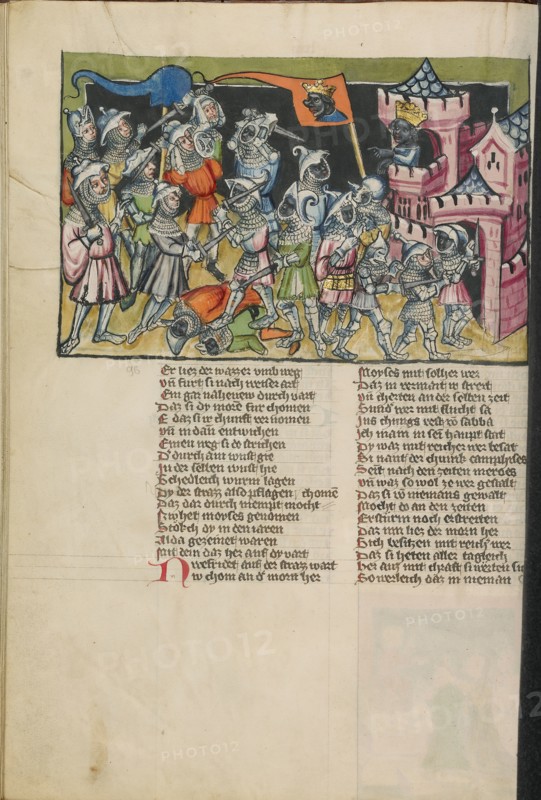 Er liez der wazzer vmb weg
vn̄ furt si nach weiser art
Ein gar nahenew durch vart
Daz si dy more fur chomen
E daz si ir chunft vernomen
vn̄ in dan entwichen
Einen weg si do strichen
D' durch ain wust gie
In der selben wust hie
Schedleich wurm lagen
Dy der strazz also pflagen
Daz dar durch niempt mocht chomē
Moyses genomen
Storch dy in den iaren
Alda gezemet waren
mit dem daz her auf dy vart
Nv chom an d' morn her
Moyses mit solher wer
Daz in vermant ir streit
vn̄ cherten an der selben zeit
Sund wer mit flucht sa
Ins chunigs vest vō sabba
Ich main in sein haupt stat
Dy waz mit reicher wer besat
Si nant der chunik
Seit nach den zeiten meroes
vn̄ waz so wol ze wer gestalt
Daz si vō niemans gewalt
Mocht do an den zeiten
Ersturm noch erstreiten
Daz nun liez der morn her
Sich besitzen mit reich' wer
Daz si heten aller tagleich
Her auz mit chraft si werten
So werleich daz in nieman
96
PHOTO12